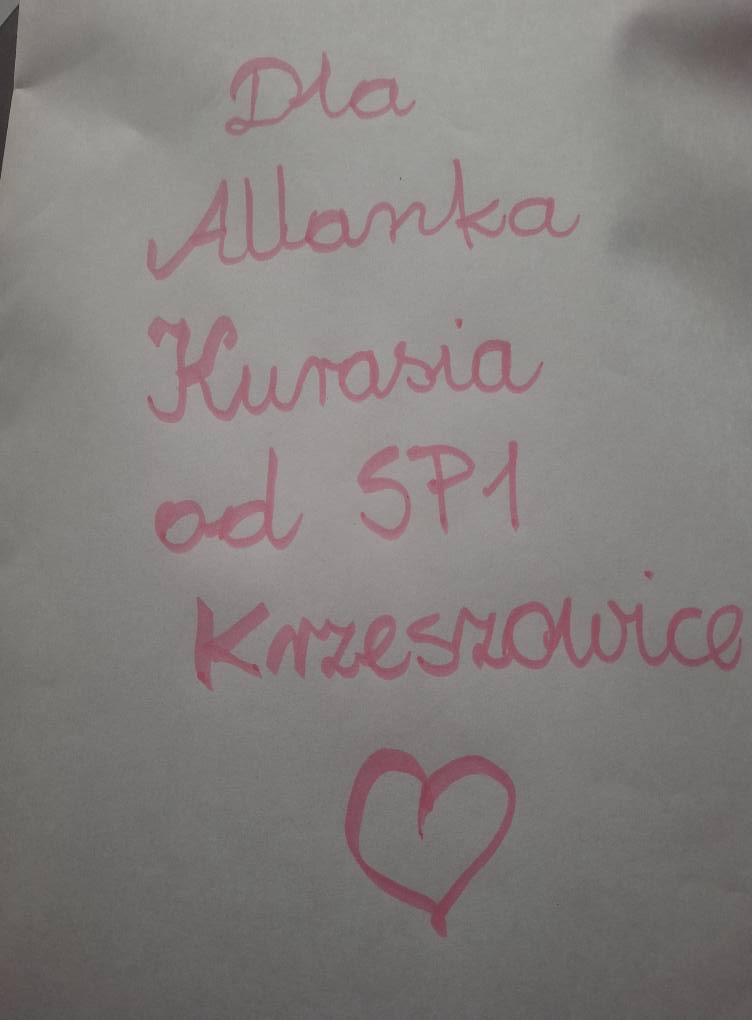 Dla
Allanka
Kurasia
od SP1
Krzeszowice